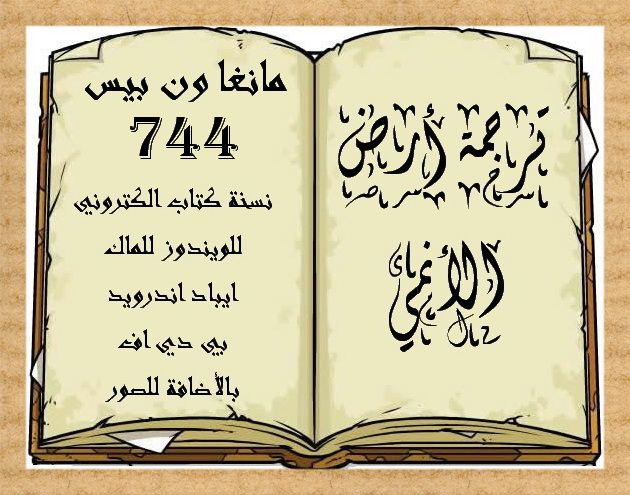 ترجمة أرض
الأنمي
مانغا ون بيس
744
نسخة كتاب الكتروني
للويندوز للماك
ايباد اندرويد
بي دي اف
بالأضافة للصور